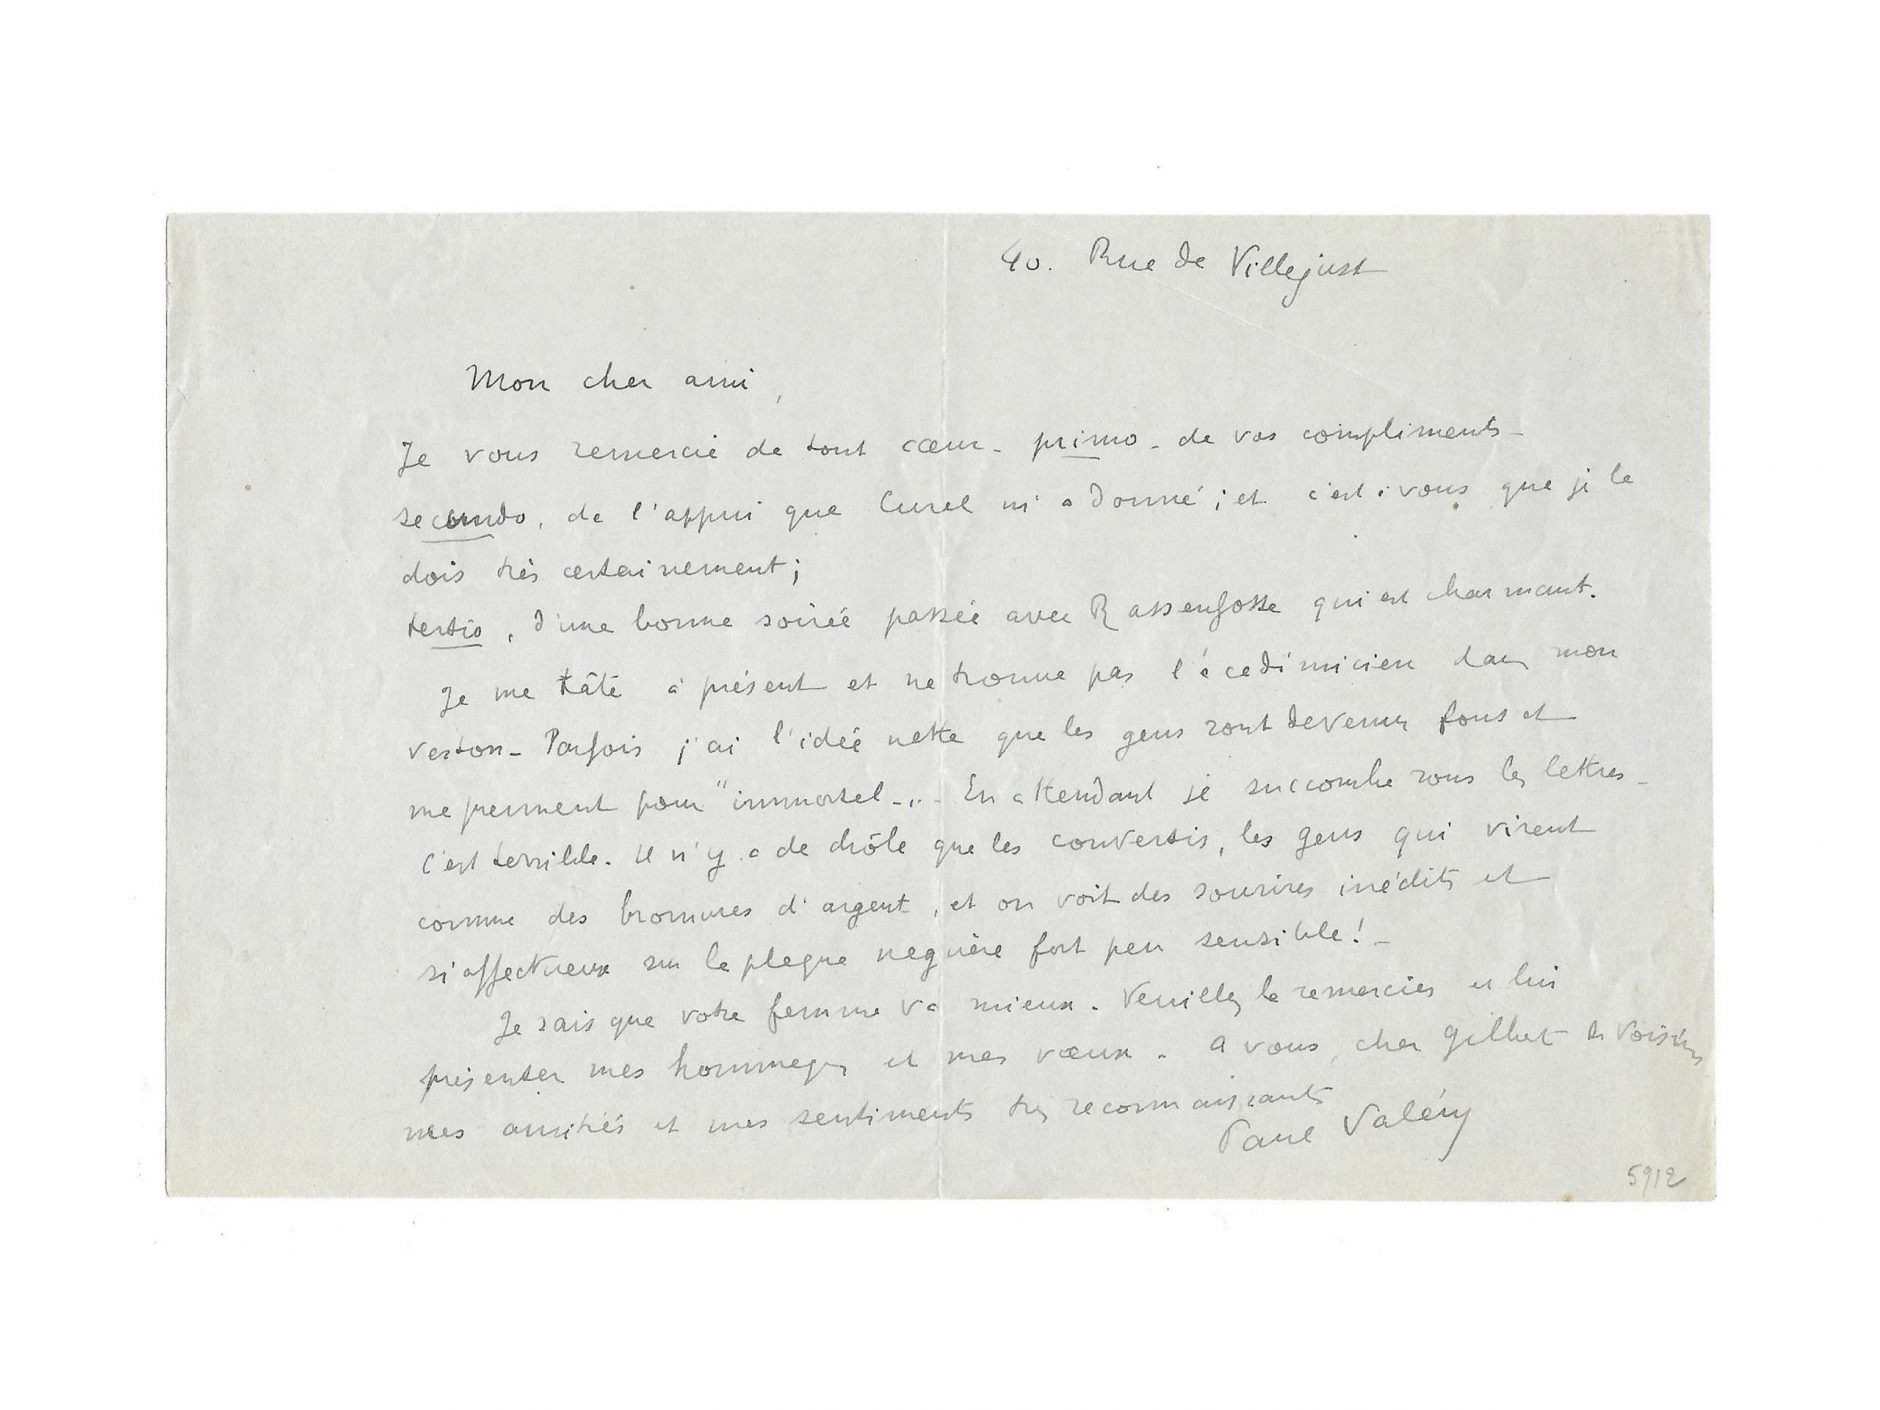 40. Rue de Villejust
Mon cher ami,
Je vous remercie de tout cœur - primo - de vos compliments -
secundo, de l'appui que Curel m'a donné ; et c'est à vous que je le
dois très certainement ;
tertio, d'une bonne soirée passée avec Rassenfosse qui est charmant.
Je me tâte à présent et ne trouve pas l'académicien dans mon
veston - Parfois j'ai l'idée nette que les gens sont devenus fous et
me prennent pour "immortel -.. - En attendant je succombe sous les lettres -
C'est terrible. Il n'y a de drôle que les convertis, les gens qui virent
comme des bromures d'argent, et on voit des sourires inédits et
si affectueux sur la plaque naguère fort peu sensible ! -
Je sais que votre femme va mieux. Veuillez la remercier et lui
présenter mes hommages et mes vœux - A vous, cher Gilbert de Voisins
mes amitiés et mes sentiments très reconnaissants
Paul Valéry
5912